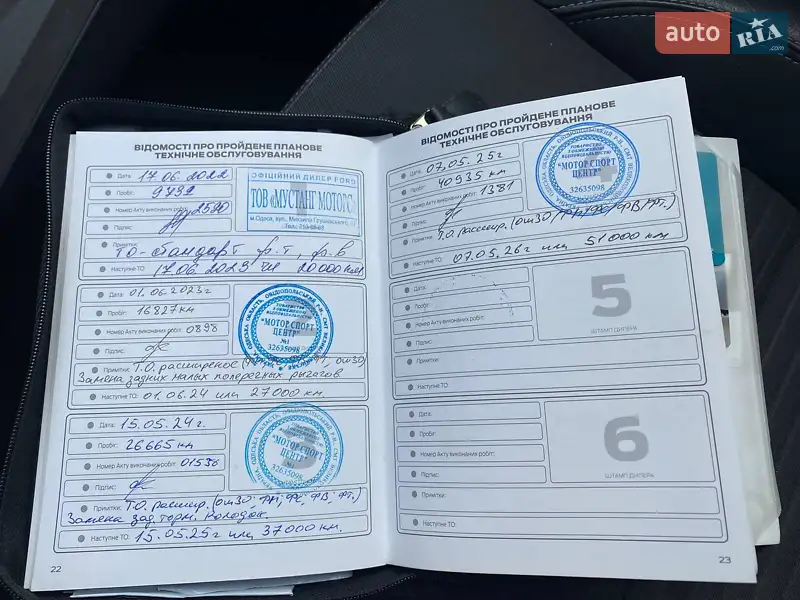 auto RIA.com
ВІДОМОСТІ ПРО ПРОЙДЕНЕ ПЛАНОВЕ
ТЕХНІЧНЕ ОБСЛУГОВУВАННЯ
Дата: 17.06.2022
Пробіг: 9792
Номер Акту виконаних робіт: 2520
Підпис:
ОФІЦІЙНИЙ ДИЛЕР FORD
ТОВ «МУСТАНГ МОТОРС»
м.Одеса, вул. Михайла Грушевського
Примітки:
ТО-стандарт ф.т, ф.в
Наступне ТО: 17.06.2023 чи 20000км
Дата: 01.06.2023г
Пробіг: 16827км
Номер Акту виконаних робіт: 0898
Підпис:
ТОВАРИСТВО З ОБМЕЖЕНОЮ ВІДПОВІДАЛЬНІСТЮ
"МОТОР СПОРТ ЦЕНТР"
№1
32635098
Примітки: Т.О. расширеное
Замена задних малых поперечных рычагов
Наступне ТО: 01.06.24 или 27000 км.
Дата: 15.05.24г.
Пробіг: 26665 км
Номер Акту виконаних робіт: 01536
Підпис:
"МОТОР СПОРТ ЦЕНТР"
№1
32635098
Примітки: Т.О. расшир. (ом30 ФМ, ФС, ФВ, Фт.)
Замена зад. торм. колодок
Наступне ТО: 15.05.25г или 37000 км.
22
ВІДОМОСТІ ПРО ПРОЙДЕНЕ ПЛАНОВЕ
ТЕХНІЧНЕ ОБСЛУГОВУВАННЯ
Дата: 07.05.25г
Пробіг: 40935 км
Номер Акту виконаних робіт: 1381
Підпис:
ТОВАРИСТВО З ОБМЕЖЕНОЮ ВІДПОВІДАЛЬНІСТЮ
"МОТОР СПОРТ ЦЕНТР"
32635098
Примітки: Т.О. расшир. (ом30/ФМ/ФС/ФВ/Фт.)
Наступне ТО: 07.05.26г или 51000 км
Дата:
Пробіг:
Номер Акту виконаних робіт:
Підпис:
5
ШТАМП ДИЛЕРА
Примітки:
Наступне ТО:
Дата:
Пробіг:
Номер Акту виконаних робіт:
Підпис:
6
ШТАМП ДИЛЕРА
Примітки:
Наступне ТО:
23